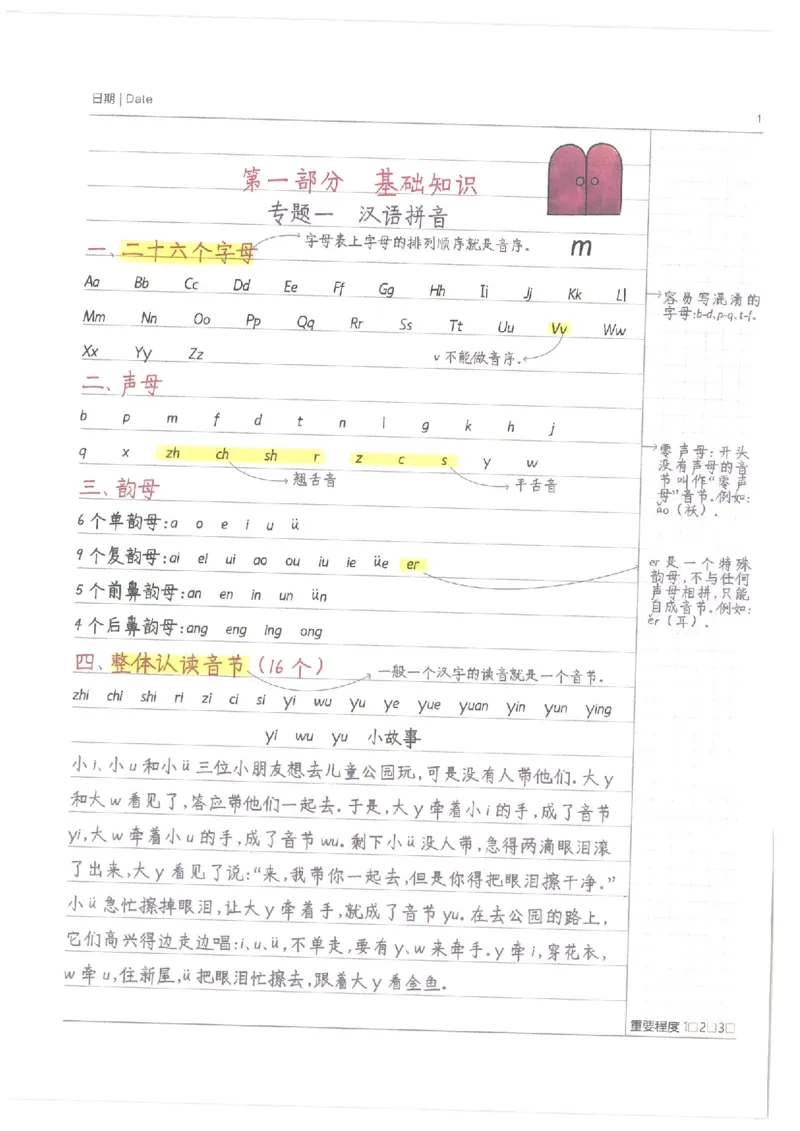 日期 | Date
1
第一部分 基础知识
专题一 汉语拼音
一、二十六个字母
字母表上字母的排列顺序就是音序。
m
Aa Bb Cc Dd Ee Ff Gg Hh Ii Jj Kk Ll
容易写混淆的
字母:b-d、p-q、t-f。
Mm Nn Oo Pp Qq Rr Ss Tt Uu Vv Ww
Xx Yy Zz
v不能做音序。
二、声母
b p m f d t n l g k h j
q x zh ch sh r z c s y w
翘舌音
平舌音
零声母:开头
没有声母的音
节叫作“零声
母”音节。例如:
ǎo(袄)。
三、韵母
6个单韵母:a o e i u ü
9个复韵母:ai ei ui ao ou iu ie üe er
er是一个特殊
韵母,不与任何
声母相拼,只能
自成音节。例如:
ěr(耳)。
5个前鼻韵母:an en in un ün
4个后鼻韵母:ang eng ing ong
四、整体认读音节(16个)
一般一个汉字的读音就是一个音节。
zhi chi shi ri zi ci si yi wu yu ye yue yuan yin yun ying
yi wu yu 小故事
小i、小u和小ü三位小朋友想去儿童公园玩,可是没有人带他们。大y
和大w看见了,答应带他们一起去。于是,大y牵着小i的手,成了音节
yi,大w牵着小u的手,成了音节wu。剩下小ü没人带,急得两滴眼泪滚
了出来,大y看见了说:“来,我带你一起去,但是你得把眼泪擦干净。”
小ü急忙擦掉眼泪,让大y牵着手,就成了音节yu。在去公园的路上,
它们高兴得边走边唱:i、u、ü,不单走,要有y、w来牵手。y牵i,穿花衣,
w牵u,住新屋,ü把眼泪忙擦去,跟着大y看金鱼。
重要程度 1□2□3□